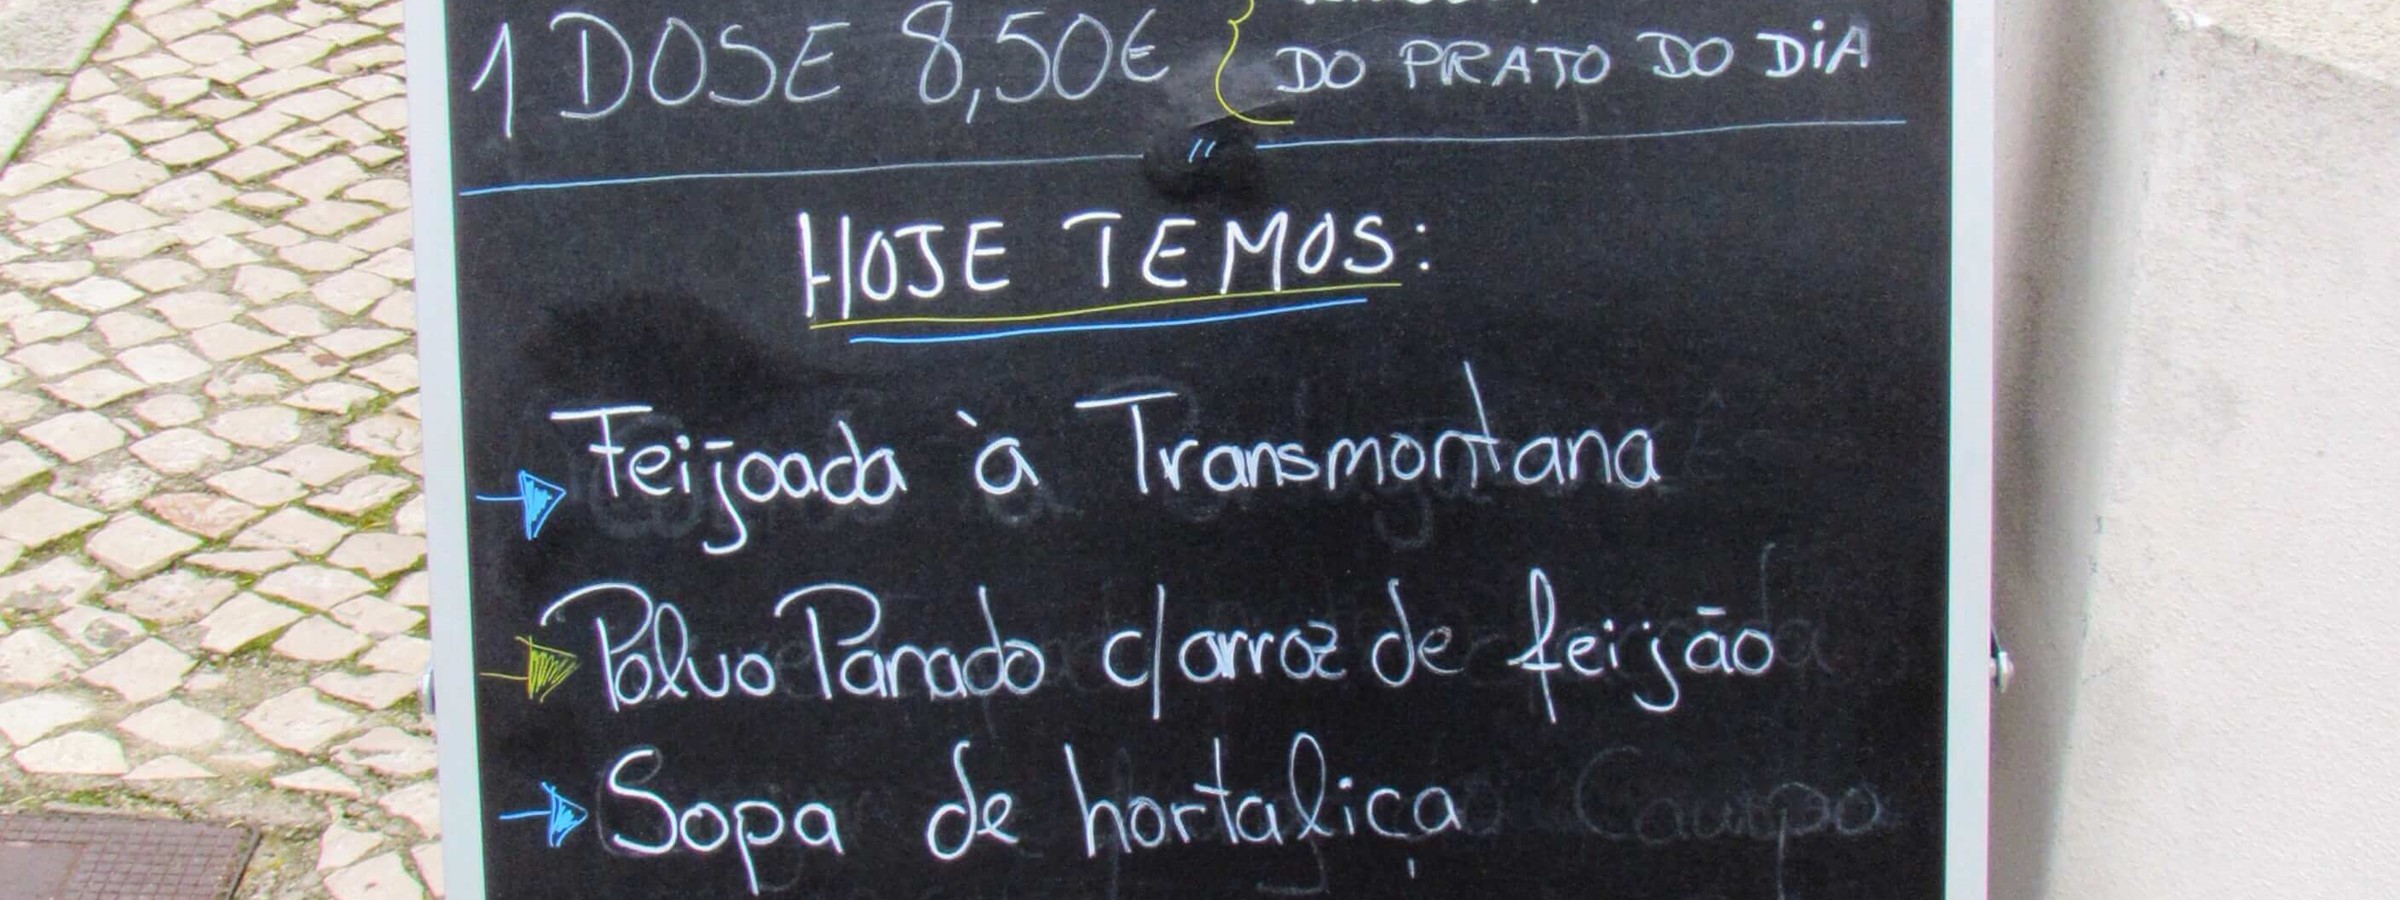 1 DOSE 8,50€
DO PRATO DO DIA
"
HOJE TEMOS:
Feijoada à Transmontana
Polvo Panado c/ arroz de feijão
Sopa de hortaliça